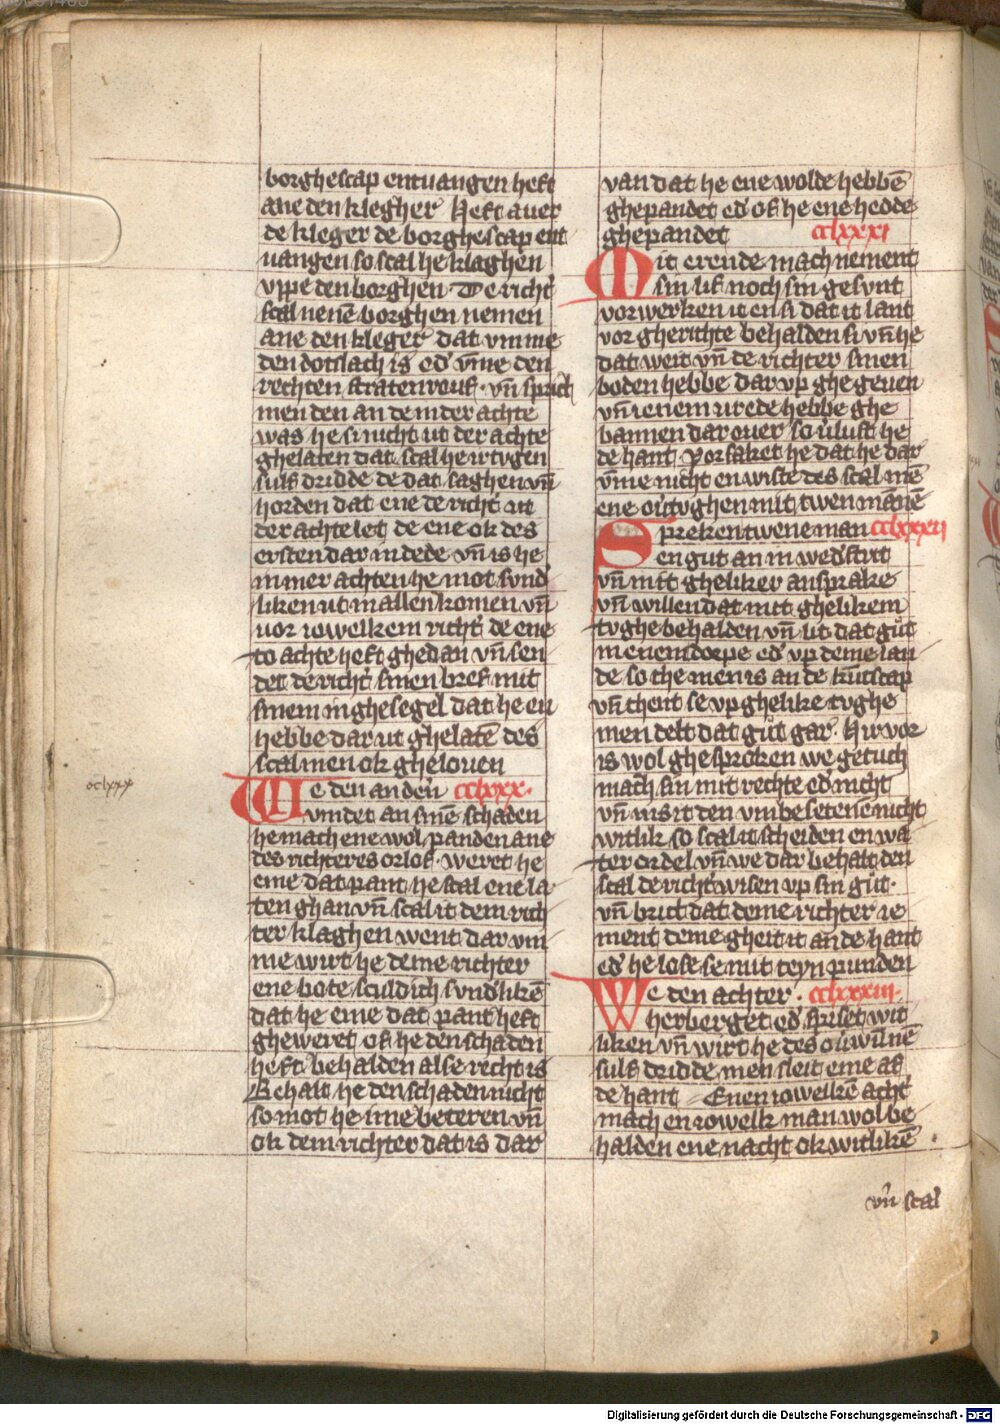 borghescap entuangen heft
ane den klegher Heft auer
de kleger de borghescap ent
uangen so scal he klaghen
vppe den borghen De richt̕
scal nenē borghen nemen
ane den kleger dat vmme
den dotslach is ed̕ vm̄e den
rechten stratenrouf · vn̄ sprict
men den an de in der achte
was he si nicht ut der achte
ghelaten dat scal he irtvgen
sulf dridde de dat saghen vn̄
horden dat ene de richt̕ ut
der achte let de ene ok des
ersten dar in dede vn̄ is he
in mer achten he mot sund̕
liken ut in allen komen vn̄
uor iowelkem richt̕ de ene
to achte heft ghedan vn̄ sen
det de richt̕ sinen bref mit
sinem inghesegel dat he en
hebbe dar ut ghelatē des
scal men ok ghelouen
cclxxx
We den anderē cclxxx·
vindet an sinē schaden
he mach ene wol panden ane
des richteres orlof · weret he
eme dat pant he scal ene la
ten ghan vn̄ scal it dem rich
ter klaghen went dar vm
me wirt he deme richter
ene bote sculdich sund̕likē
dat he eme dat pant heft
gheweret of he den schaden
heft behalden alse recht is
Behalt he den schaden nicht
so mot he ime beteren vn̄
ok dem richter dat is dar
van dat he ene wolde hebbē
ghepandet ed̕ of he ene hedde
ghepandet cclxxxi
Mit erende mach nement
sin lif noch sin gesunt
vorwerken it en si dat it lant
vor gherichte behalden si vn̄ he
dat weit vn̄ de richter sinen
boden hebbe dar vp ghegeuen
vn̄ ienem urede hebbe ghe
bannen dar ouer so ulust he
de hant Vorsaket he dat he dar
vm̄e nicht en wiste des scal mē
ene ou̕tvghen mit twen mānē
Spreken twene man cclxxxii
en gut an in wed̕strit
vn̄ mit gheliker ansprake
vn̄ willen dat mit ghelikem
tvghe behalden vn̄ lit dat gůt
in euem dorpe ed̕ vp deme lan
de so the men is an de kuntscap
vn̄ thent se vp ghelike tvghe
men delt dat gůt gar · Hir vor
is wol ghesproken we getuch
mach sin mit rechte ed̕ nicht
vn̄ nis it den vmbesetenē nicht
witlik so scal it scheiden en wa
ter ordel vn̄ we dar behalt den
scal de richt̕ wisen vp sin gůt·
vn̄ brict dat deme richter ie
ment deme gheit it an de hant
ed̕ he lose se mit teyn punden
We den achter · cclxxxiii·
herberget ed̕ spiset wit
liken vn̄ wirt he des ou̕wūnē
sulf dridde men sleit eme af
de hant Enen iowelkē acht̕
mach en iowelk man wol be
halden ene nacht ok witlikē
vn̄ scal
Digitalisierung gefördert durch die Deutsche Forschungsgemeinschaft - DFG